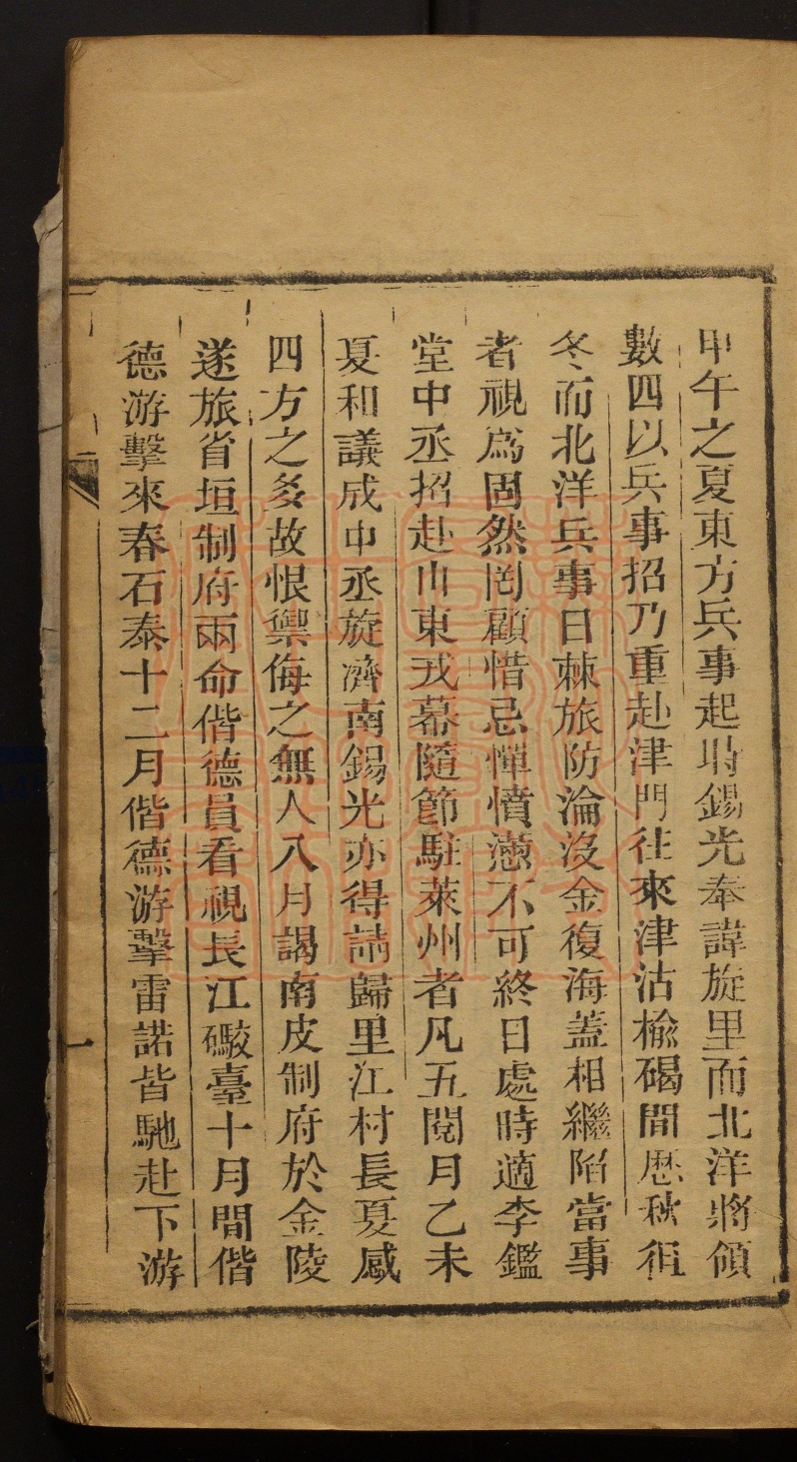 甲午之夏東方兵事起時錫光奉諱旋里而北洋將領
數四以兵事招乃重赴津門往來津沽榆碣間歷秋徂
冬而北洋兵事日棘旅防淪沒金復海蓋相繼陷當事
者視爲固然罔顧惜忌憚憤懣不可終日處時適李鑑
堂中丞招赴山東戎幕隨節駐萊州者凡五閱月乙未
夏和議成中丞旋濟南錫光亦得請歸里江村長夏感
四方之多故恨禦侮之無人八月謁南皮制府於金陵
遂旅省垣制府兩命偕德員看視長江礮臺十月間偕
德游擊來春石泰十二月偕德游擊雷諾皆馳赴下游
一